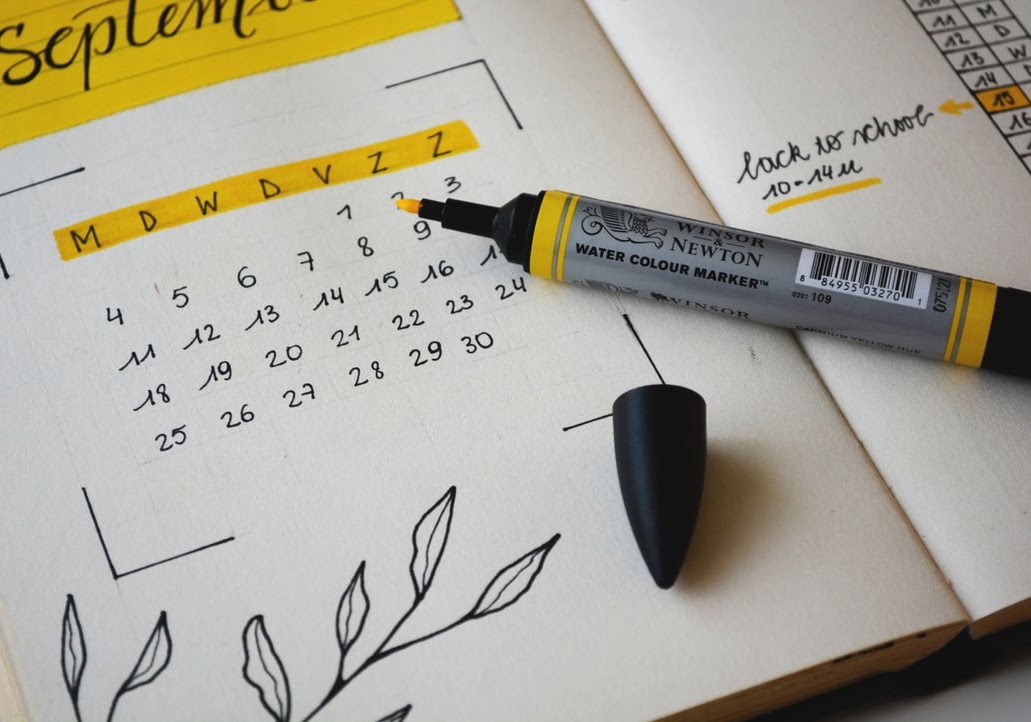 Septem
M D W D V Z Z
1 2 3
4 5 6 7 8 9
11 12 13 14 15 16
18 19 20 21 22 23 24
25 26 27 28 29 30
11 M
12 D
13 W
14
15
16
back to school
10-14u
WINSOR
&
NEWTON
WATER COLOUR MARKER™
8 84955 03270 1
0201 109
WINSOR
CADMIUM YELLOW HUE